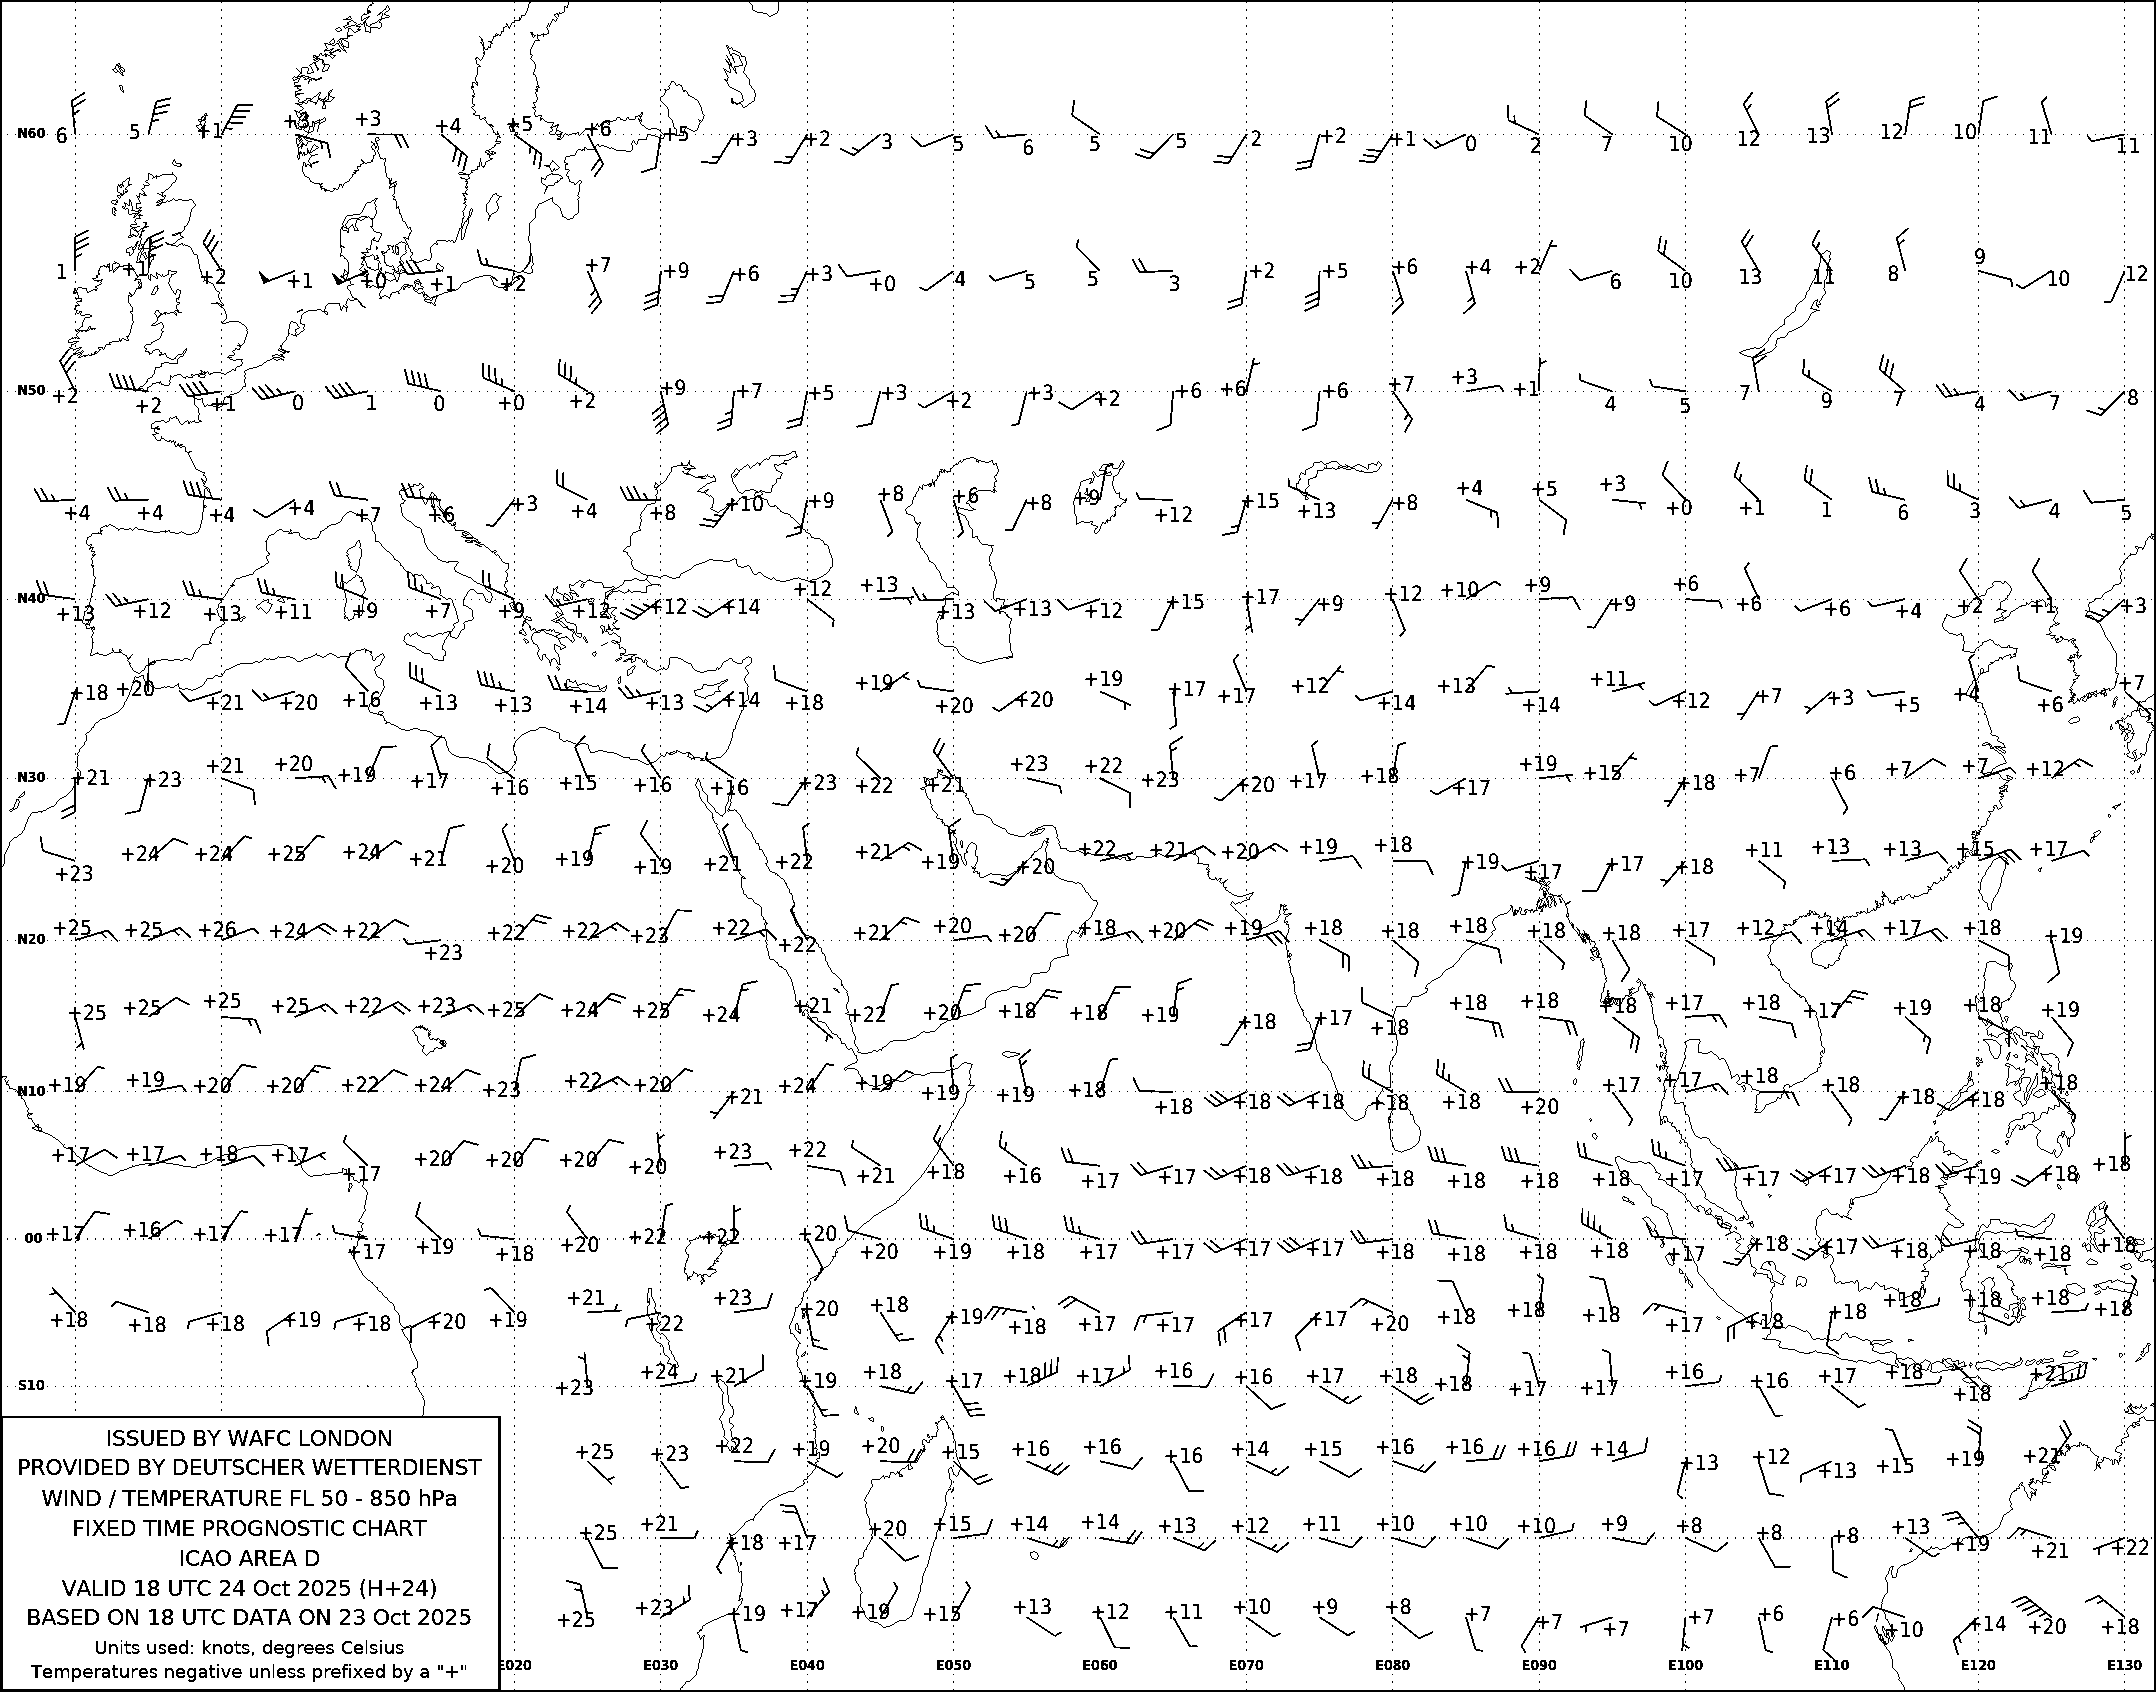 N60 6 5 +1 +3 +3 +4 +5 +6 +5 +3 +2 3 5 6 5 5 2 +2 +1 0 2 7 10 12 13 12 10 11 11
1 +1 +2 +1 +0 +1 +2 +7 +9 +6 +3 +0 4 5 5 3 +2 +5 +6 +4 +2 6 10 13 11 8 9 10 12
N50 +2 +2 +1 0 1 0 +0 +2 +9 +7 +5 +3 +2 +3 +2 +6 +6 +6 +7 +3 +1 4 5 7 9 7 4 7 8
+4 +4 +4 +4 +7 +6 +3 +4 +8 +10 +9 +8 +6 +8 +9 +12 +15 +13 +8 +4 +5 +3 +0 +1 1 6 3 4 5
N40 +13 +12 +13 +11 +9 +7 +9 +12 +12 +14 +12 +13 +13 +13 +12 +15 +17 +9 +12 +10 +9 +9 +6 +6 +6 +4 +2 +1 +3
+18 +20 +21 +20 +16 +13 +13 +14 +13 +14 +18 +19 +20 +20 +19 +17 +17 +12 +14 +13 +14 +11 +12 +7 +3 +5 +4 +6 +7
N30 +21 +23 +21 +20 +19 +17 +16 +15 +16 +16 +23 +22 +21 +23 +22 +23 +20 +17 +18 +17 +19 +15 +18 +7 +6 +7 +7 +12
+23 +24 +24 +25 +24 +21 +20 +19 +19 +21 +22 +21 +19 +20 +22 +21 +20 +19 +18 +19 +17 +17 +18 +11 +13 +13 +15 +17
N20 +25 +25 +26 +24 +22 +23 +22 +22 +23 +22 +22 +21 +20 +20 +18 +20 +19 +18 +18 +18 +18 +18 +17 +12 +14 +17 +18 +19
+25 +25 +25 +25 +22 +23 +25 +24 +25 +24 +21 +22 +20 +18 +18 +19 +18 +17 +18 +18 +18 +18 +17 +18 +17 +19 +18 +19
N10 +19 +19 +20 +20 +22 +24 +23 +22 +20 +21 +24 +19 +19 +19 +18 +18 +18 +18 +18 +18 +20 +17 +17 +18 +18 +18 +18 +18
+17 +17 +18 +17 +17 +20 +20 +20 +20 +23 +22 +21 +18 +16 +17 +17 +18 +18 +18 +18 +18 +18 +17 +17 +17 +18 +19 +18 +18
00 +17 +16 +17 +17 +17 +19 +18 +20 +22 +22 +20 +20 +19 +18 +17 +17 +17 +17 +18 +18 +18 +18 +17 +18 +17 +18 +18 +18 +18
+18 +18 +18 +19 +18 +20 +19 +21 +22 +23 +20 +18 +19 +18 +17 +17 +17 +17 +20 +18 +18 +18 +17 +18 +18 +18 +18 +18 +18
S10 +23 +24 +21 +19 +18 +17 +18 +17 +16 +16 +17 +18 +18 +17 +17 +16 +16 +17 +18 +18 +21
+25 +23 +22 +19 +20 +15 +16 +16 +16 +14 +15 +16 +16 +16 +14 +13 +12 +13 +15 +19 +21
+25 +21 +18 +17 +20 +15 +14 +14 +13 +12 +11 +10 +10 +10 +9 +8 +8 +8 +13 +19 +21 +22
+25 +23 +19 +17 +19 +15 +13 +12 +11 +10 +9 +8 +7 +7 +7 +7 +6 +6 +10 +14 +20 +18
E020 E030 E040 E050 E060 E070 E080 E090 E100 E110 E120 E130
ISSUED BY WAFC LONDON
PROVIDED BY DEUTSCHER WETTERDIENST
WIND / TEMPERATURE FL 50 - 850 hPa
FIXED TIME PROGNOSTIC CHART
ICAO AREA D
VALID 18 UTC 24 Oct 2025 (H+24)
BASED ON 18 UTC DATA ON 23 Oct 2025
Units used: knots, degrees Celsius
Temperatures negative unless prefixed by a "+"